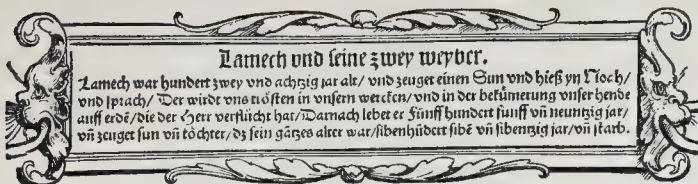 Lamech vnd seine zwey weyber.
Lamech war hundert zwey vnd achtzig jar alt/ vnd zeuget einen Sun vnd hieß yn Noch/
vnd sprach/ Der wirdt vns trösten in vnsern wercken/ vnd in der bekümerung vnser hende
auff erdē/ die der Herr verflůcht hat/ Darnach lebet er Fünff hundert funff vñ neuntzig jar/
vñ zeuget sun vñ töchter/ dz sein gātzes alter war/ sibenhūdert sibē vñ sibentzig jar/ vñ starb.